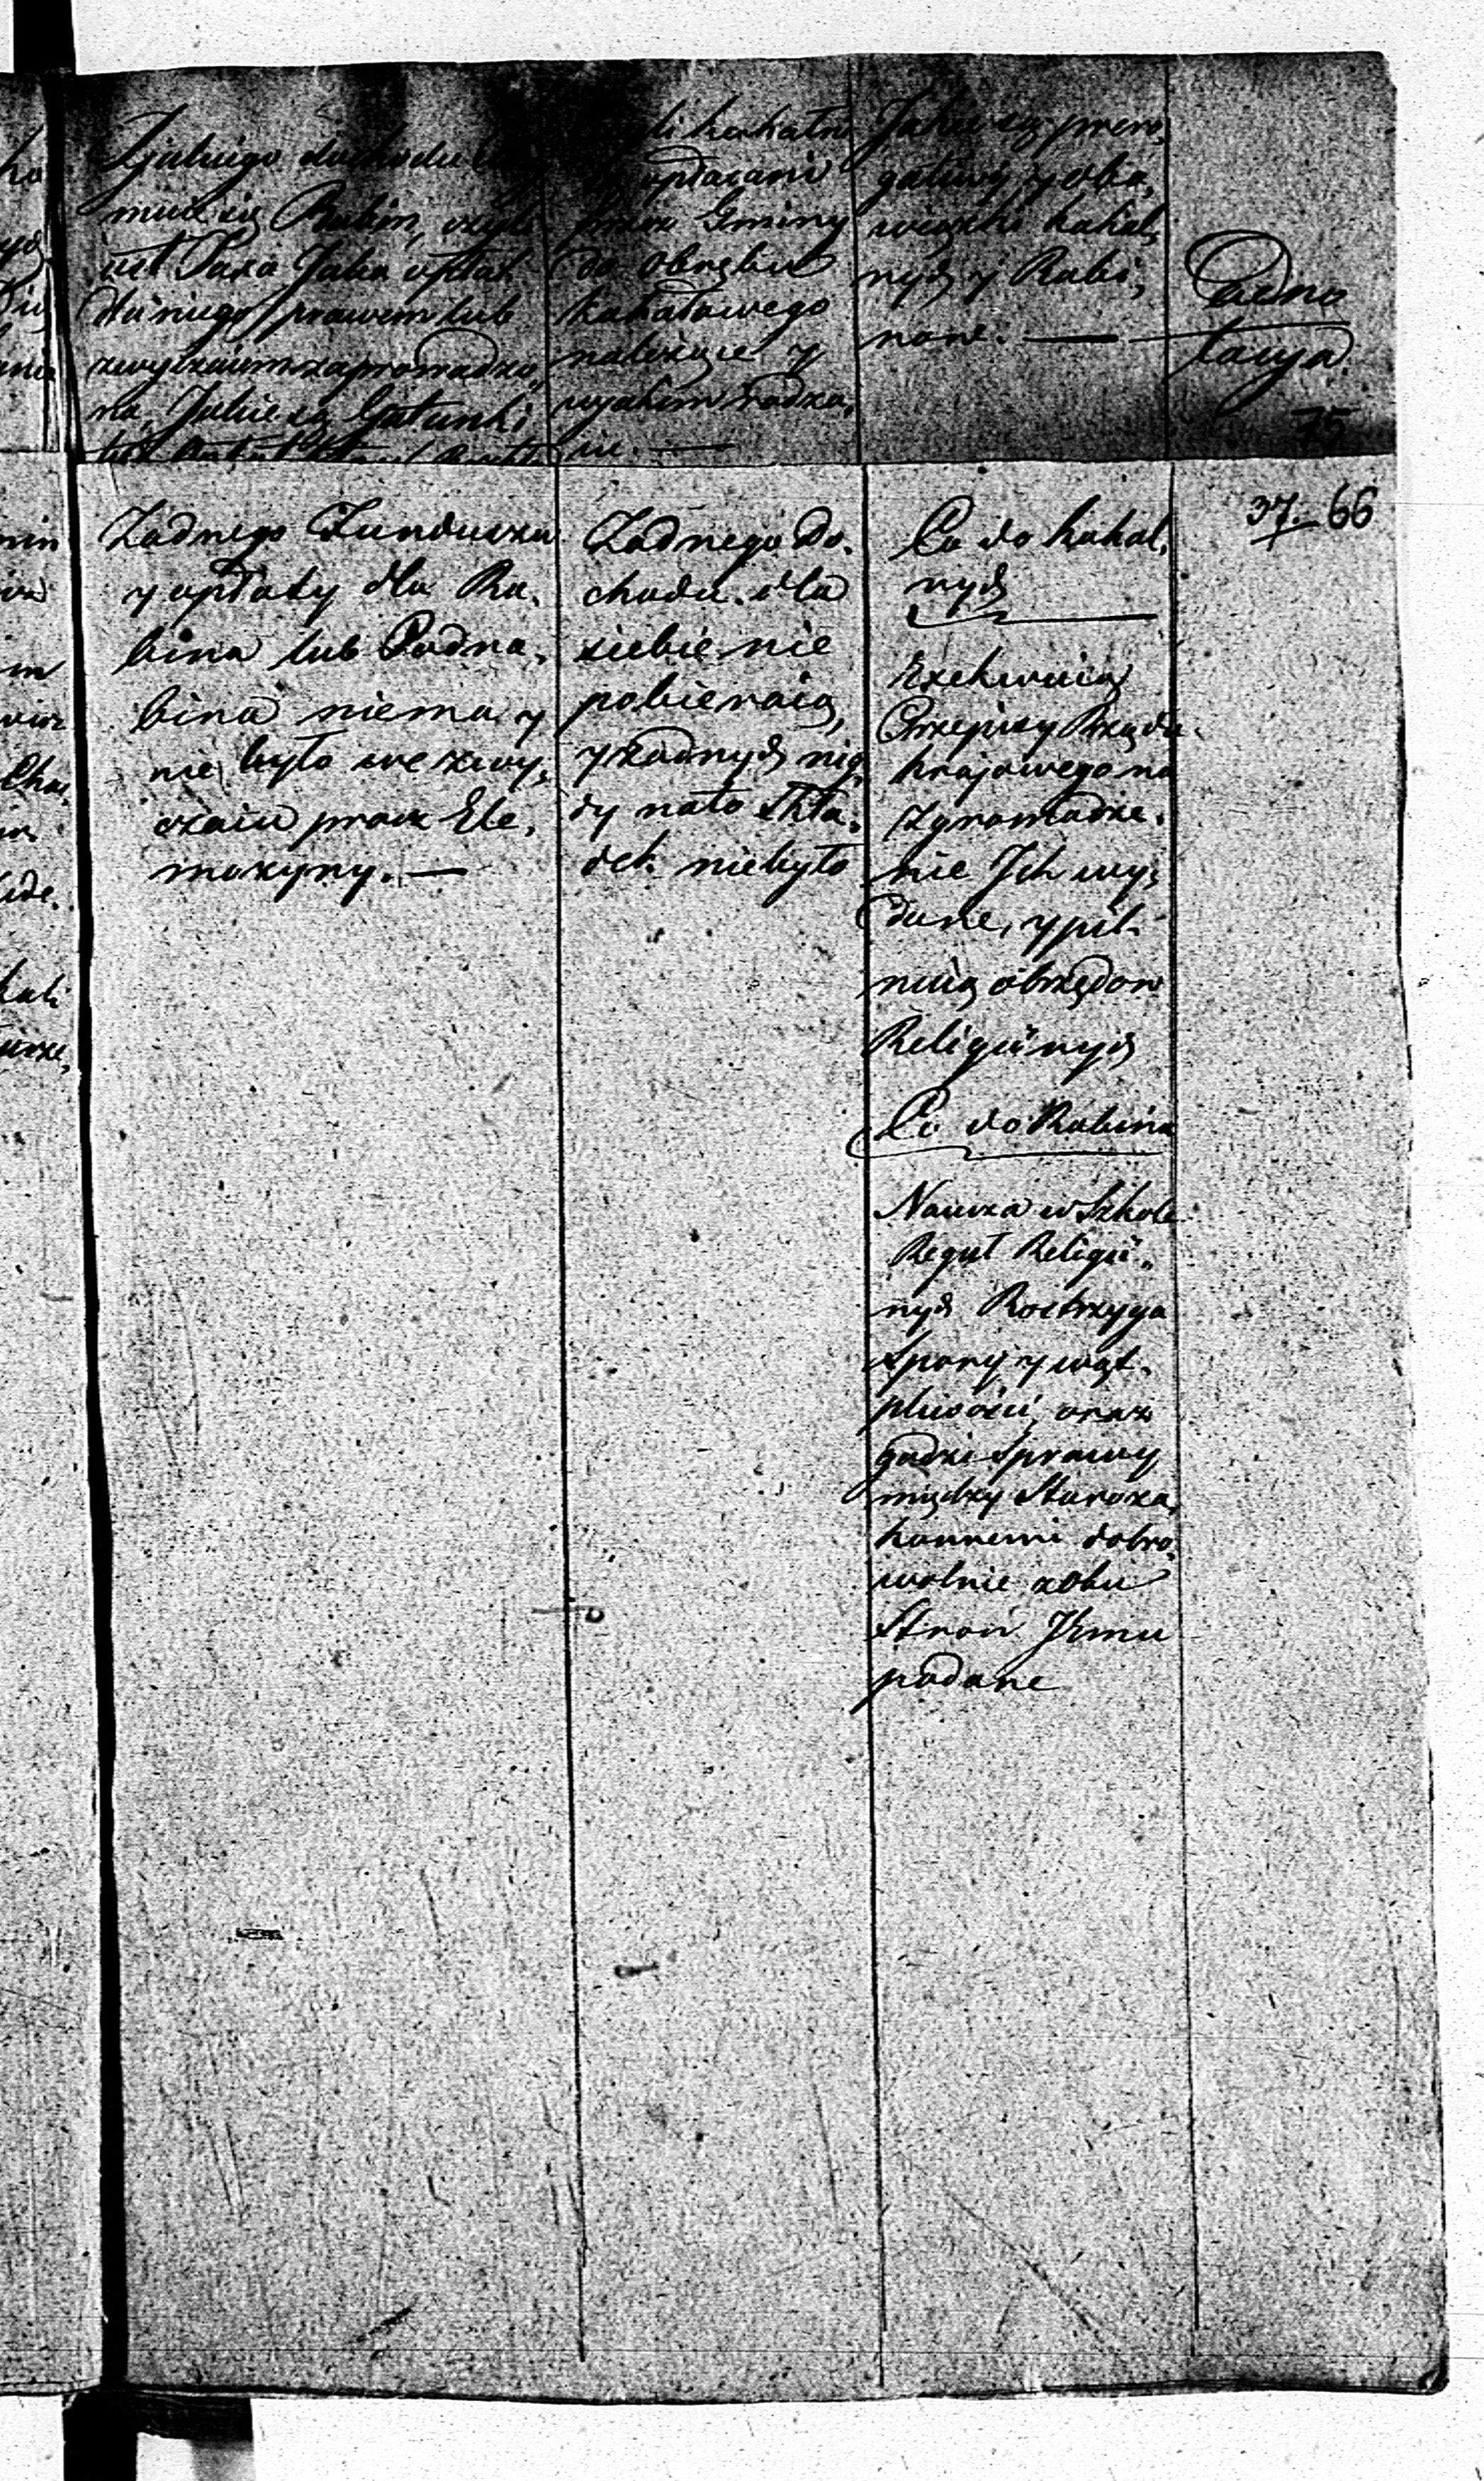 Z jakiego dochodu
muie się Rabin, czyli
iest Taxa Jaka opłat
dla niego prawem lub
zwyczaiem zaprowadzo,
na, Jakie są Gatunki
opłacani
przez Gminy
do obrębu
Kahałowego
należące y
w jakim rodza,
iu. —
Jakie są prero,
gatywy y obo,
wiązki kahal,
nych y Rabi,
now. —
Adno
tacya.
75
37. 66
Żadnego Funduszu
y opłaty dla Ra,
bina lub Podra,
bina niema y
nie było we zwy,
czaiu procz Ele,
mozyny. —
Żadnego Do,
chodu dla
siebie nie
pobieraią,
y żadnych nig,
dy na to Skła,
dek niebyło
Co do Kahal,
nych
Exekwuią
Przepisy Rządu
krajowego na
zgromadze,
nie Ich wy,
dane, y pil,
nuią obrzędow
Religiinych
Co do Rabina
Naucza w Szkole
Reguł Religii,
nych Rostrzyga
spory y wąt,
pliwości, oraz
godzi Sprawy
między Staroza,
konnemi dobro,
wolnie z obu
Stron Jemu
podane